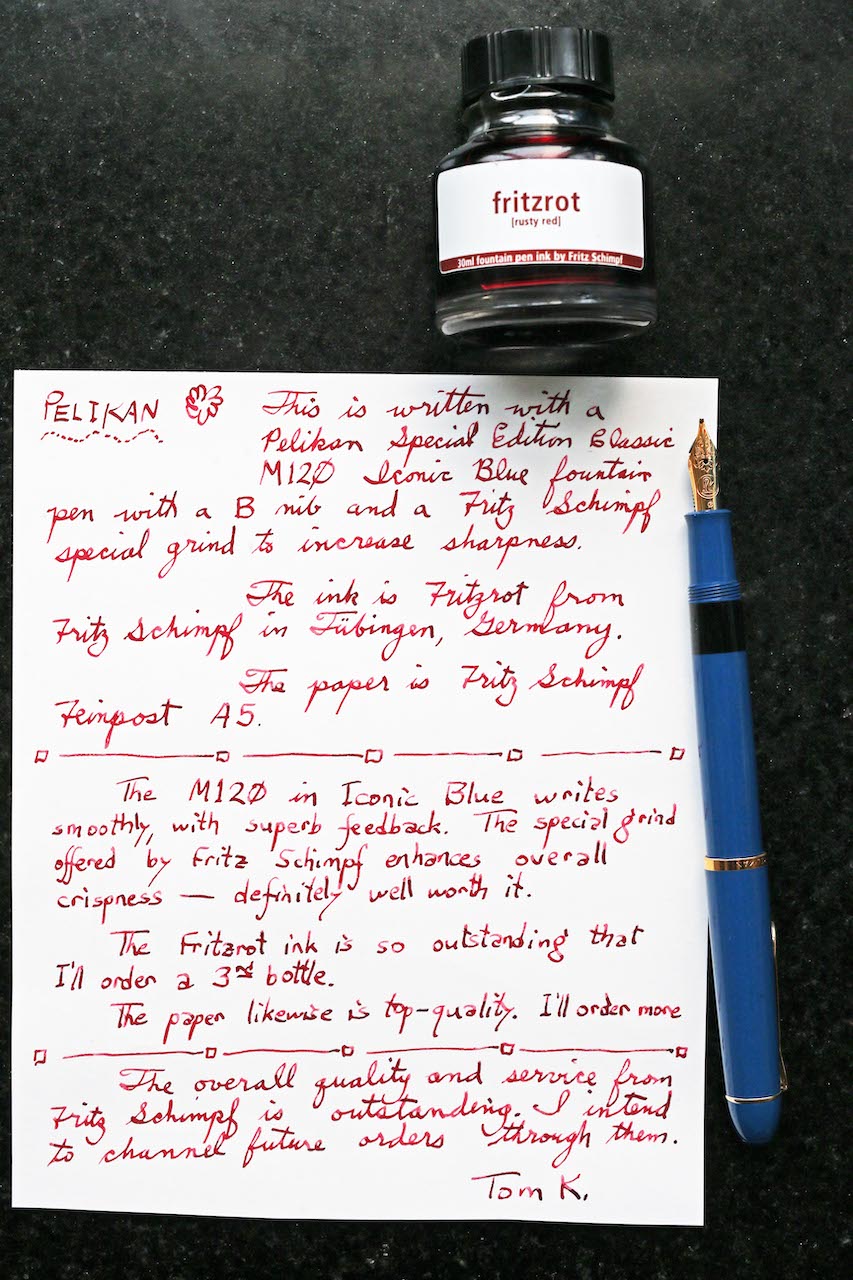 fritzrot
[rusty red]
30ml fountain pen ink by Fritz Schimpf
PELIKAN
This is written with a
Pelikan Special Edition Classic
M12Ø Iconic Blue fountain
pen with a B nib and a Fritz Schimpf
special grind to increase sharpness.
The ink is Fritzrot from
Fritz Schimpf in Tübingen, Germany.
The paper is Fritz Schimpf
Feinpost A5.
The M12Ø in Iconic Blue writes
smoothly, with superb feedback. The special grind
offered by Fritz Schimpf enhances overall
crispness — definitely well worth it.
The Fritzrot ink is so outstanding that
I'll order a 3rd bottle.
The paper likewise is top-quality. I'll order more
The overall quality and service from
Fritz Schimpf is outstanding. I intend
to channel future orders through them.
Tom K.